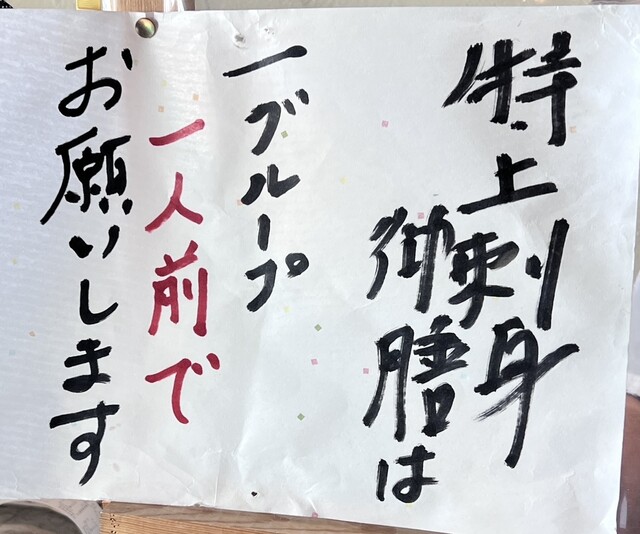 特上刺身
御膳は
一グループ
一人前で
お願いします